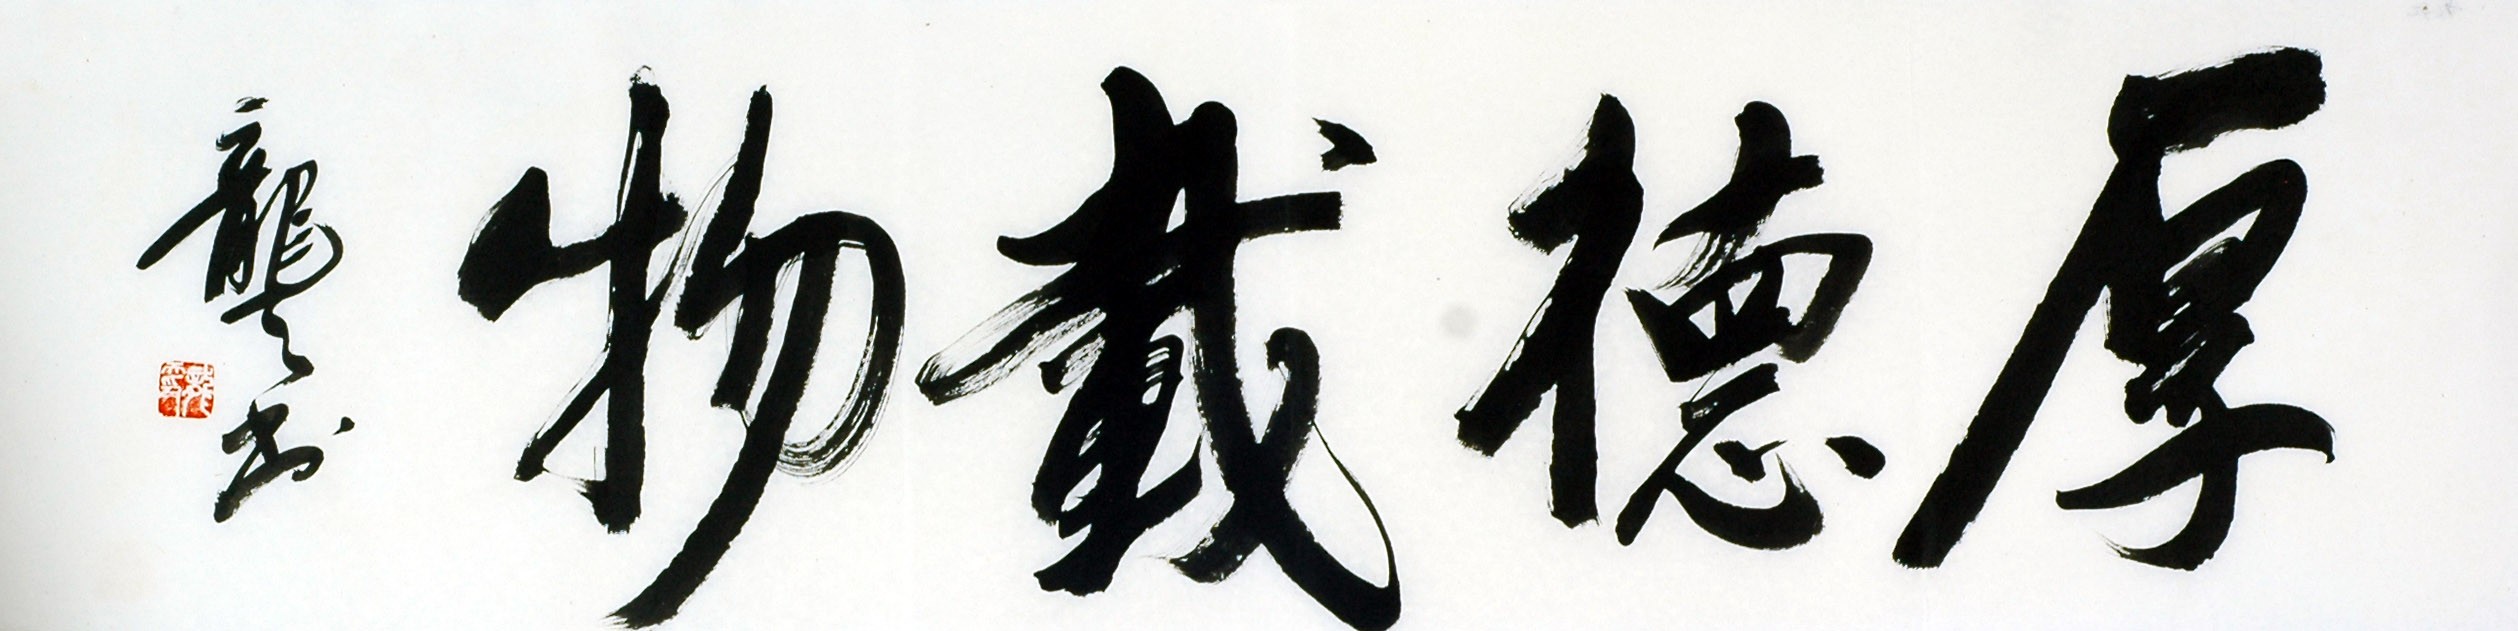 厚德載物
龔書